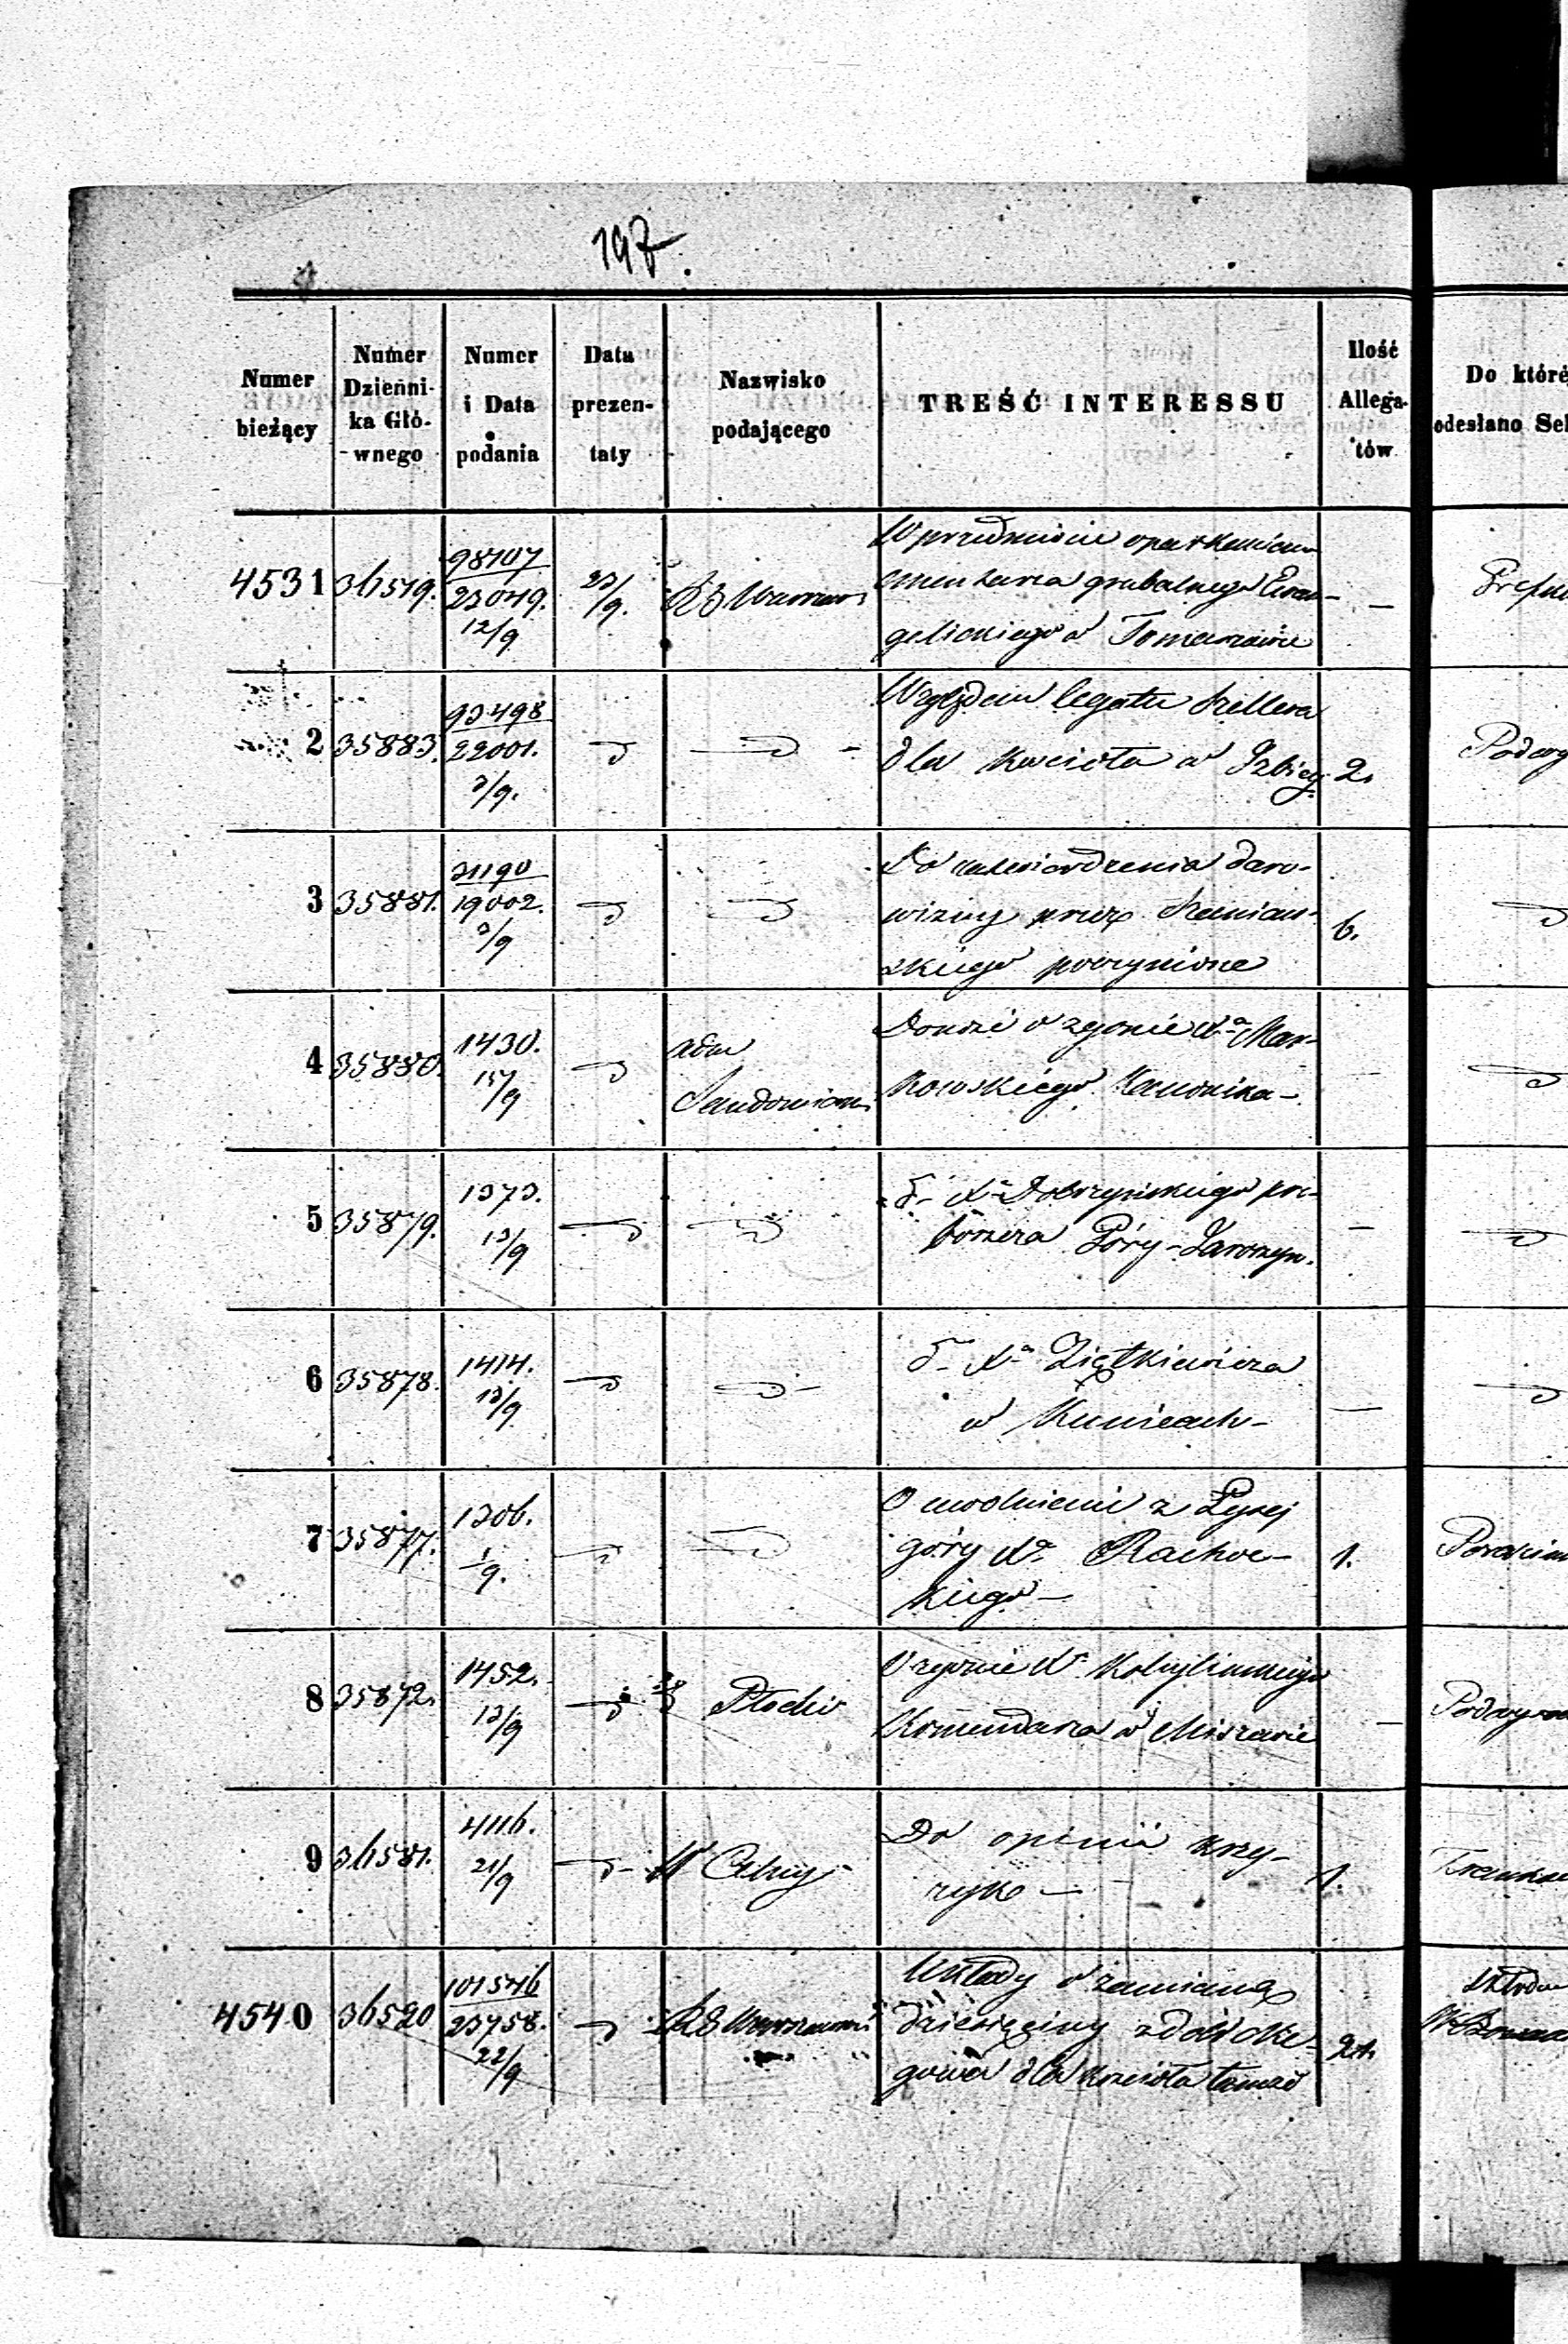 197.
Numer bieżący | Numer Dzienni- ka Głó- wnego | Numer i Data podania | Data prezen- taty | Nazwisko podającego | TREŚĆ INTERESSU | Ilość Allega- tów | Do któré odesłano Sek
4531 | 36519. | 98107 / 23049. 12/9 | 23/9. | RG Warszaw | W przedmiocie oparkanienia
cmentarza grzebalnego Ewan-
gelickiego w Tomaszowie | —
2 | 35883. | 93498 / 22001. 3/9. | Względem legatu Szellera
dla Kościoła w Izbicy | 2.
3 | 35881. | 31190 / 19002. 2/9 | Do zatwierdzenia daro-
wizny przez
skiego poczynione | 6.
4 | 35880. | 1430. 15/9 | Adm
Sandomiers | Donosi o zgonie Xa Mar-
kowskiego Kanonika — | —
5 | 35879. | 1373. 13/9 | d- Xa Dobrzyńskiego pro-
boszcza Góry-Jaroszyn. | —
6 | 35878. | 1414. 13/9 | d- Xa Ziętkiewicza
w Kunicach — | —
7 | 35877. | 1306. 1/9. | O uwolnieniu z Łysej
góry Xa Rachoc-
kiego — | 1.
8 | 35872. | 1452. 13/9 | Płocki | O zgonie Xa Kobylińskiego
Komendarza w | — | Podwy
9 | 36581. | 4116. 21/9 | Do opinii Krzy-
ryk — | 1.
4540 | 36520 | 101546 / 23758. 22/9 | RG Warszawski | Układy o zamianę
dziesięciny z dóbr
dla Kościoła tamże | 21.